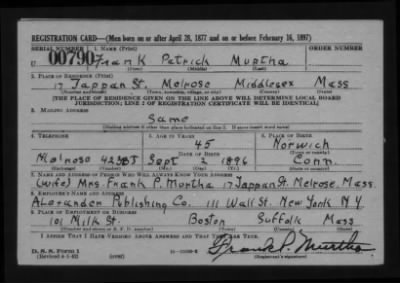 REGISTRATION CARD—(Men born on or after April 28, 1877 and on or before February 16, 1897)
SERIAL NUMBER 1. NAME (Print) ORDER NUMBER
U 00790 Frank Patrick Murtha
(First) (Middle) (Last)
2. PLACE OF RESIDENCE (Print)
17 Tappan St. Melrose Middlesex Mass
(Number and street) (Town, township, village, or city) (County) (State)
[THE PLACE OF RESIDENCE GIVEN ON THE LINE ABOVE WILL DETERMINE LOCAL BOARD
JURISDICTION; LINE 2 OF REGISTRATION CERTIFICATE WILL BE IDENTICAL]
3. MAILING ADDRESS
Same
(Mailing address if other than place indicated on line 2. If same insert word same)
4. TELEPHONE 5. AGE IN YEARS 6. PLACE OF BIRTH
45 Norwich
DATE OF BIRTH (Town or county)
Melrose Sept 2 1896 Conn.
(Exchange) (Number) (Mo.) (Day) (Yr.) (State or country)
7. NAME AND ADDRESS OF PERSON WHO WILL ALWAYS KNOW YOUR ADDRESS
(wife) Mrs. Frank P. Murtha 17 Tappan St. Melrose. Mass.
8. EMPLOYER'S NAME AND ADDRESS
Alexander Publishing Co. 111 Wall St. New York N.Y.
9. PLACE OF EMPLOYMENT OR BUSINESS
101 Milk St. Boston Suffolk Mass
(Number and street or R. F. D. number) (Town) (County) (State)
I AFFIRM THAT I HAVE VERIFIED ABOVE ANSWERS AND THAT THEY ARE TRUE.
D. S. S. Form 1
(Revised 4-1-42) (over) Frank P. Murtha
(Registrant's signature)